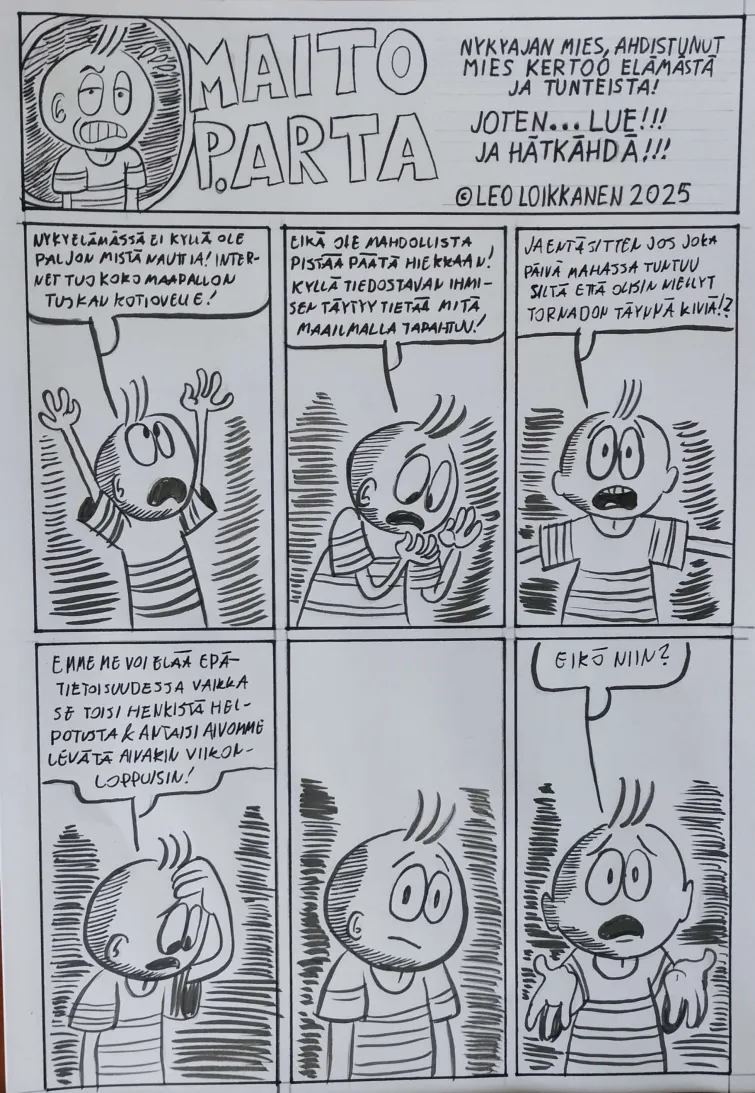 MAITO
P.ARTA
NYKYAJAN MIES, AHDISTUNUT
MIES KERTOO ELÄMÄSTÄ
JA TUNTEISTA!
JOTEN... LUE!!!
JA HÄTKÄHDÄ!!!
©LEO LOIKKANEN 2025
NYKYELÄMÄSSÄ EI KYLLÄ OLE
PALJON MISTÄ NAUTTIA! INTER-
NET TUO KOKO MAAPALLON
TUSKAN KOTIOVELLE!
EIKÄ OLE MAHDOLLISTA
PISTÄÄ PÄÄTÄ HIEKKAAN!
KYLLÄ TIEDOSTAVAN IHMI-
SEN TÄYTYY TIETÄÄ MITÄ
MAAILMALLA TAPAHTUU!
JA ENTÄ SITTEN JOS JOKA
PÄIVÄ MAHASSA TUNTUU
SILTÄ ETTÄ OLISIN NIELLYT
TORNADON TÄYNNÄ KIVIÄ!?
EMME ME VOI ELÄÄ EPÄ-
TIETOISUUDESSA VAIKKA
SE TOISI HENKISTÄ HEL-
POTUSTA & ANTAISI AIVOMME
LEVÄTÄ AIVAKIN VIIKON-
LOPPUISIN!
EIKÖ NIIN?